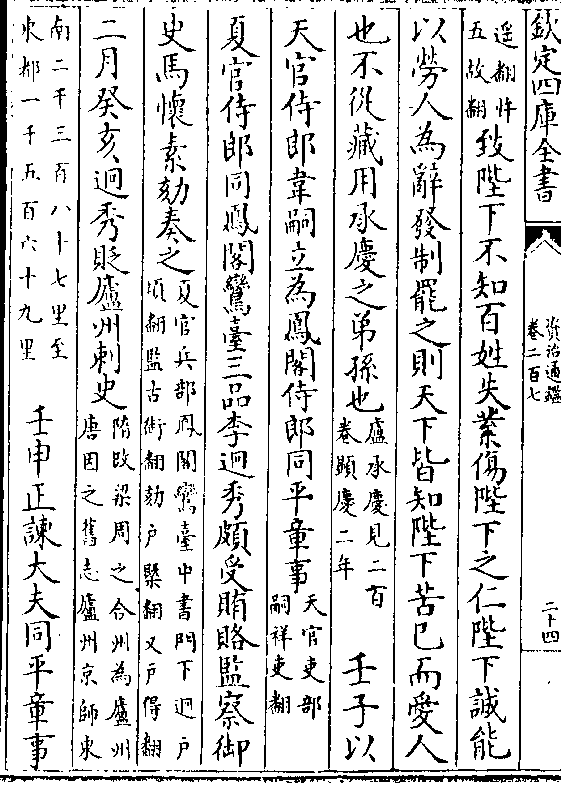 欽定四庫全書
資治通鑑
卷二百七
二十四
遥翻忤
五故翻
致陛下不知百姓失業傷陛下之仁陛下誠能
以勞人為辭發制罷之則天下皆知陛下苦已而愛人
也不從藏用承慶之弟孫也
盧承慶見二百
卷顯慶二年
壬子以
天官侍郎韋嗣立為鳳閣侍郎同平章事
天官吏部
嗣祥吏翻
夏官侍郎同鳳閣鸞臺三品李迥秀頗受賄賂監察御
史馬懷素劾奏之
夏官兵部鳳閣鸞臺中書門下迥户
頃翻監古銜翻劾户槩翻又户得翻
二月癸亥迥秀貶廬州刺史
隋改梁周之合州為廬州
唐因之舊志廬州京師東
南二千三百八十七里至
東都一千五百六十九里
壬申正諫大夫同平章事